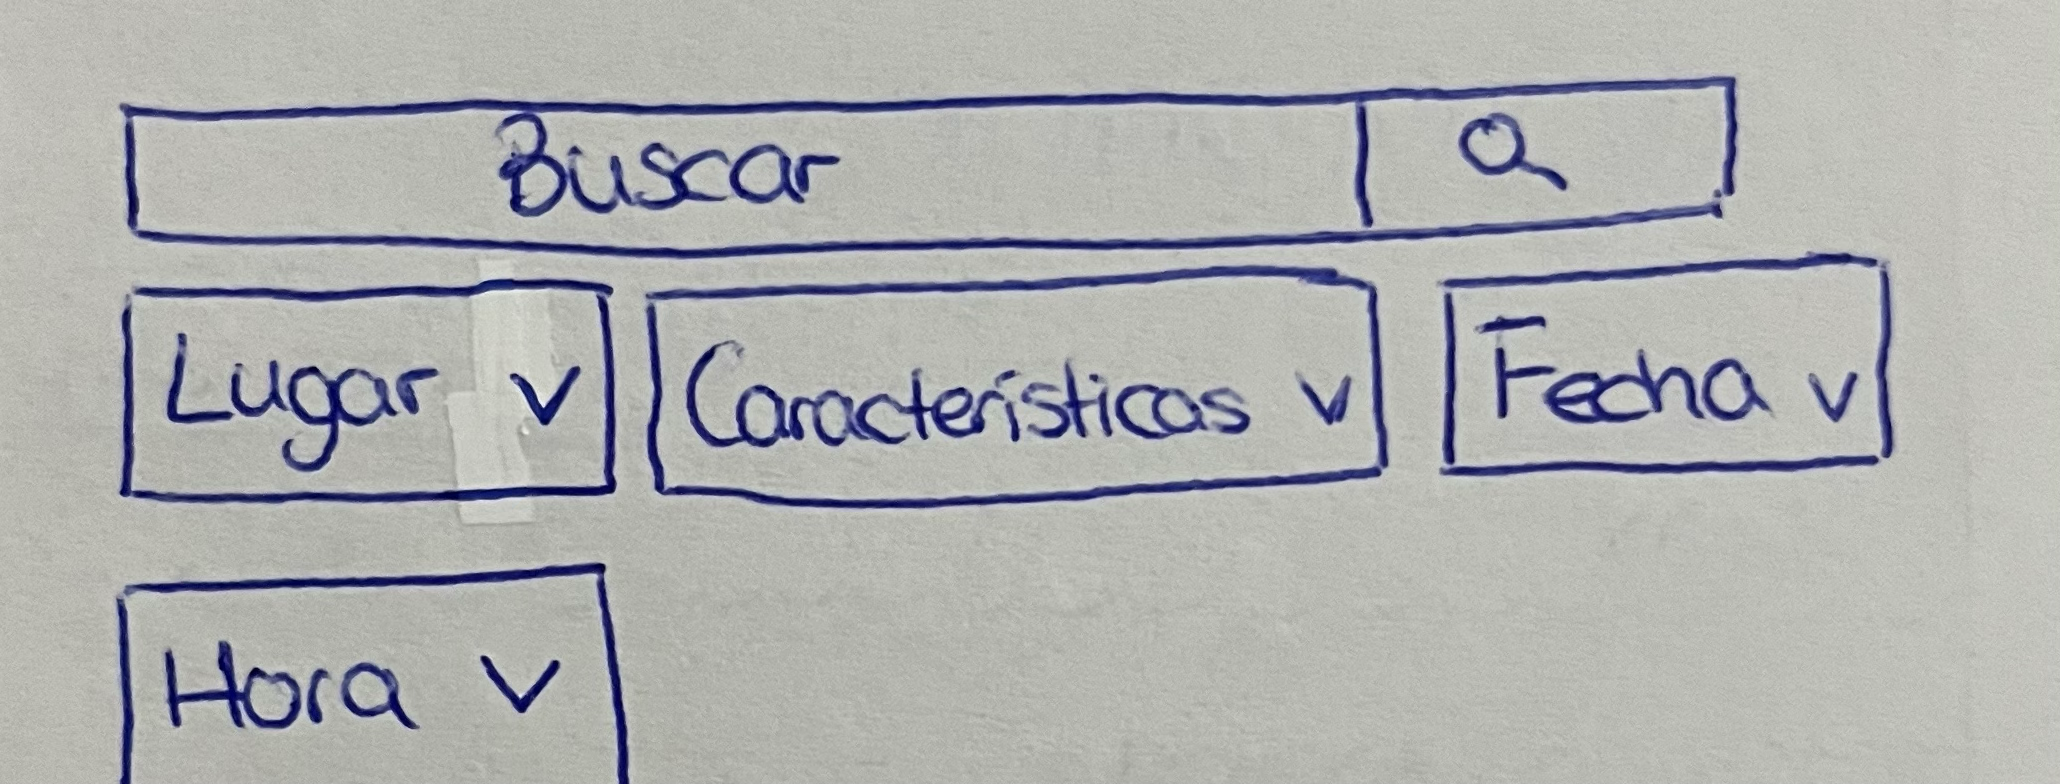 Buscar
Lugar v Características v Fecha v
Hora v